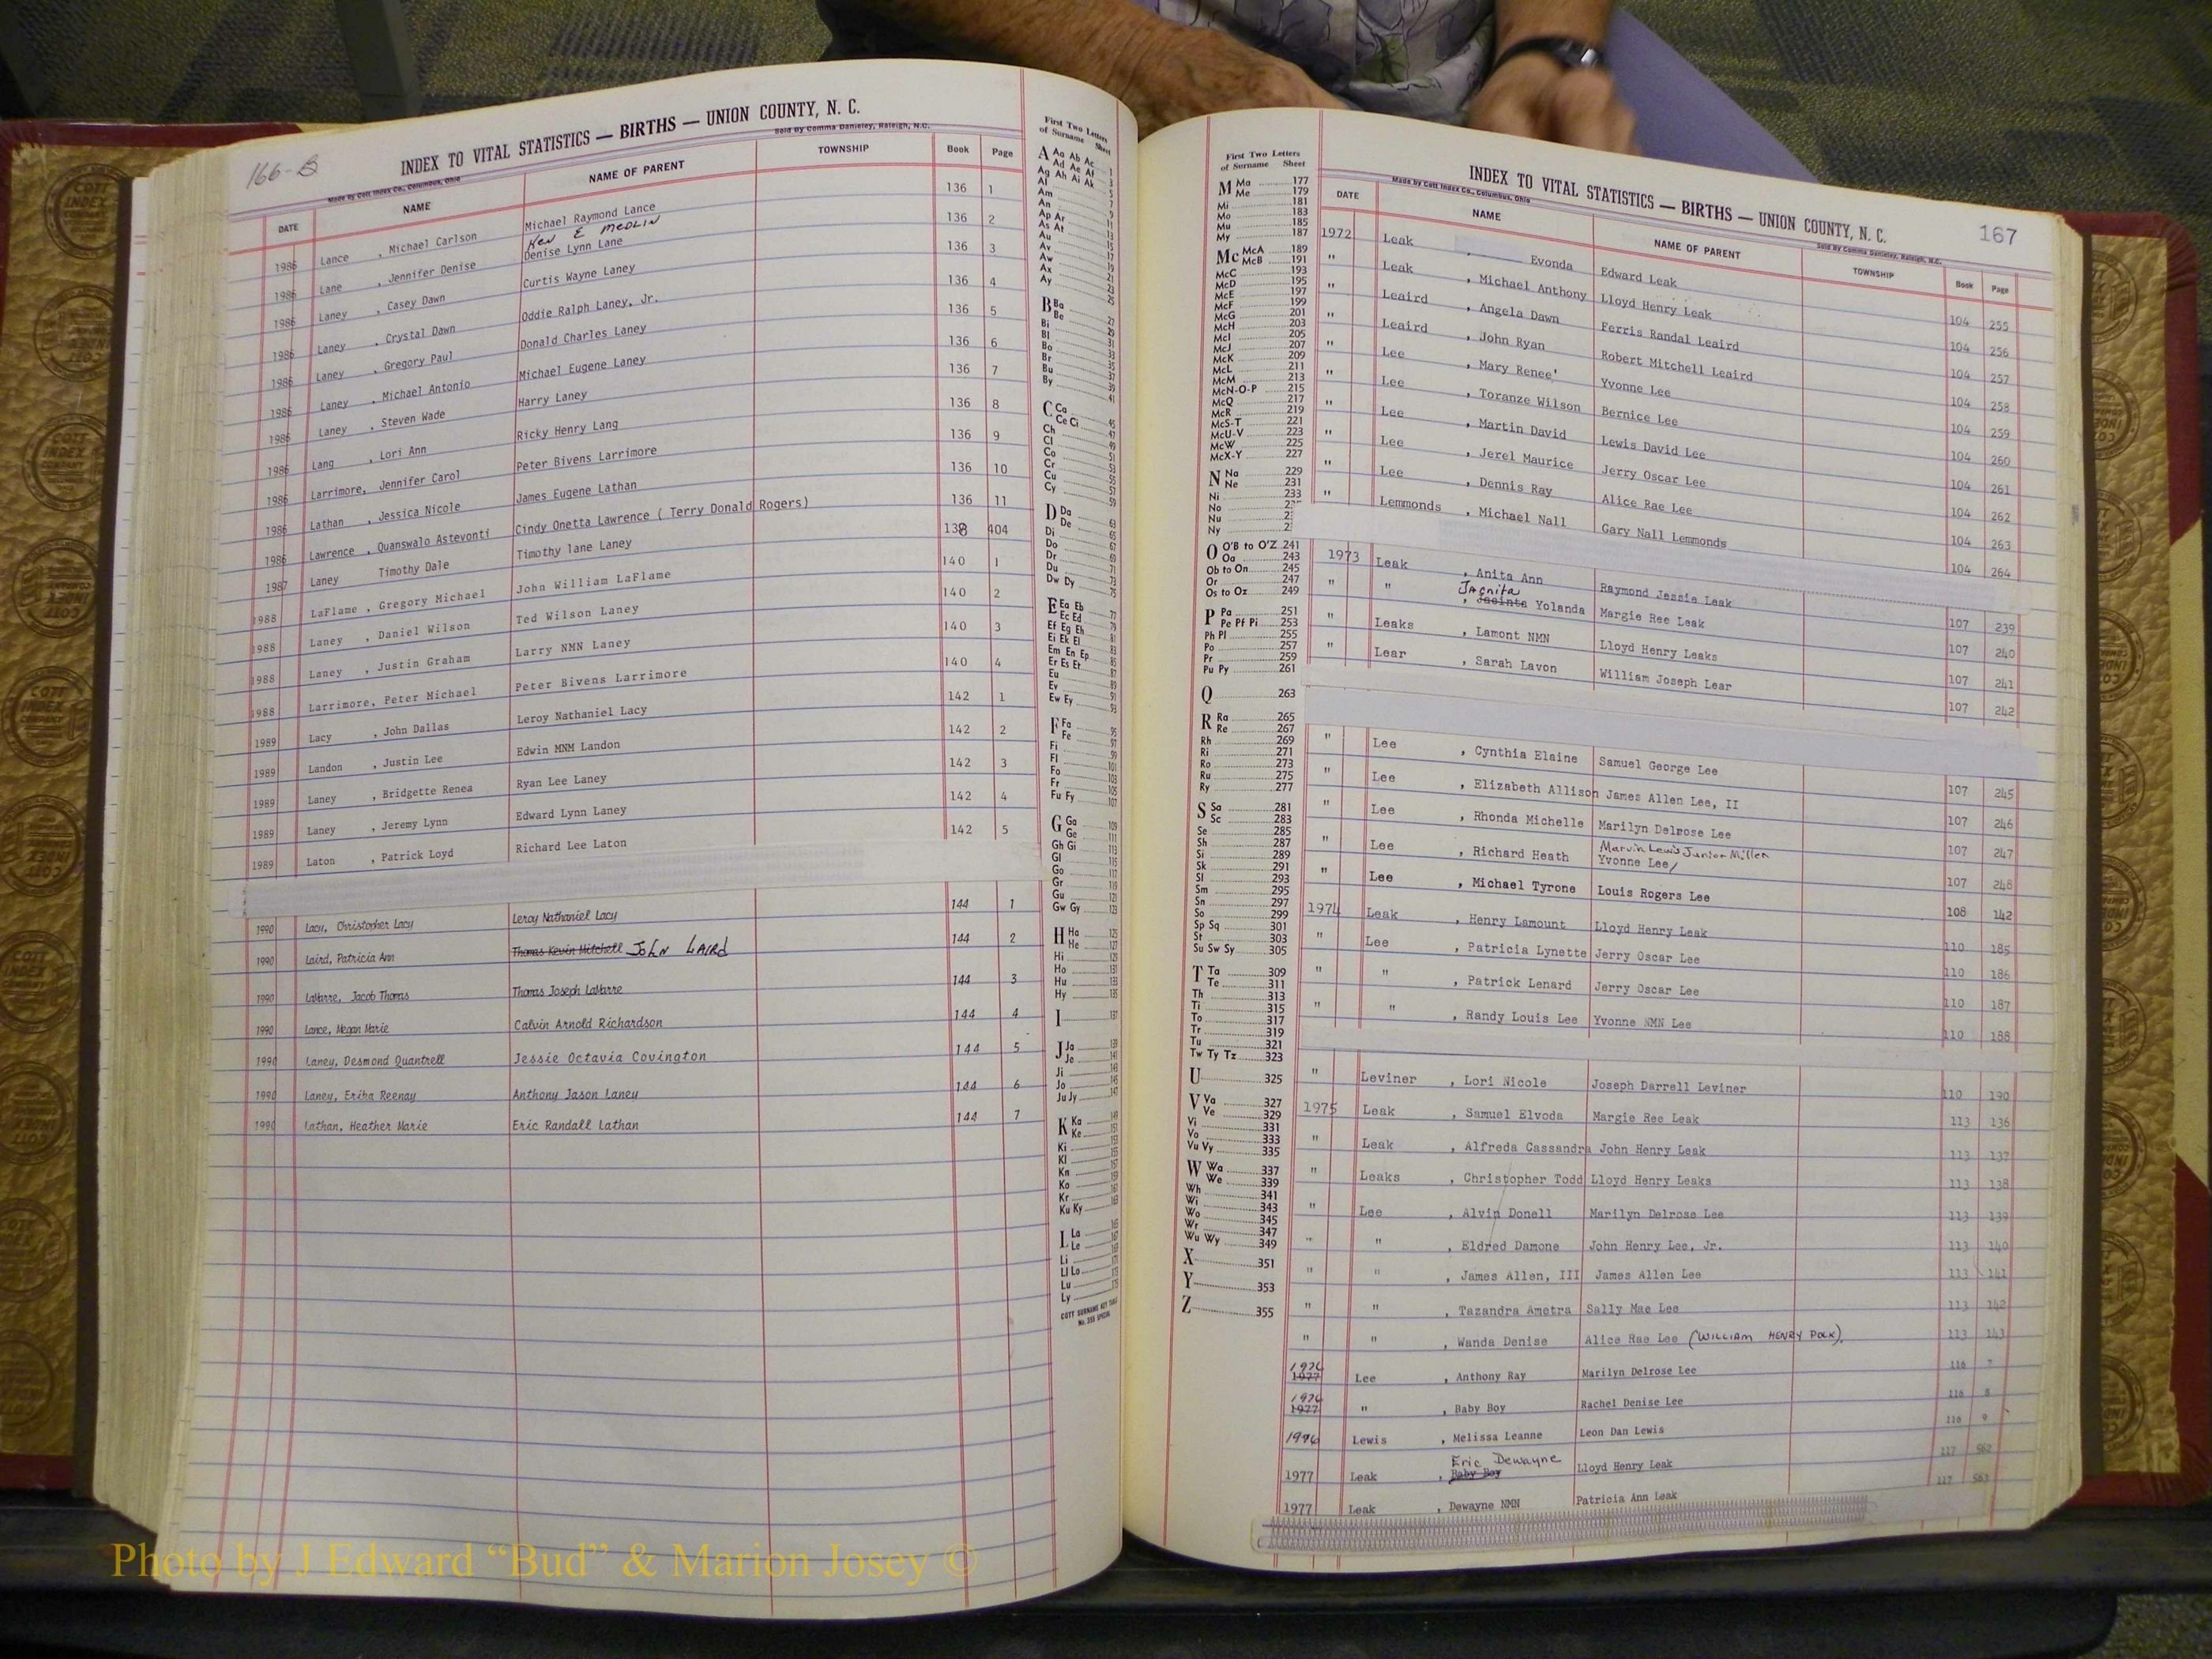 166-B
INDEX TO VITAL STATISTICS — BIRTHS — UNION COUNTY, N. C.
Made by Cott Index Co., Columbus, Ohio
Sold By Comma Danieley, Raleigh, N.C.
DATE NAME NAME OF PARENT TOWNSHIP Book Page
1986 Lance , Michael Carlson Michael Raymond Lance 136 1
Ken E MEDLIN
1986 Lane , Jennifer Denise Denise Lynn Lane 136 2
1986 Laney , Casey Dawn Curtis Wayne Laney 136 3
1986 Laney , Crystal Dawn Oddie Ralph Laney, Jr. 136 4
1986 Laney , Gregory Paul Donald Charles Laney 136 5
1986 Laney , Michael Antonio Michael Eugene Laney 136 6
1986 Laney , Steven Wade Harry Laney 136 7
1986 Lang , Lori Ann Ricky Henry Lang 136 8
1986 Larrimore, Jennifer Carol Peter Bivens Larrimore 136 9
1986 Lathan , Jessica Nicole James Eugene Lathan 136 10
1986 Lawrence , Quanswalo Astevonti Cindy Onetta Lawrence ( Terry Donald Rogers) 136 11
1987 Laney Timothy Dale Timothy lane Laney 138 404
1988 LaFlame , Gregory Michael John William LaFlame 140 1
1988 Laney , Daniel Wilson Ted Wilson Laney 140 2
1988 Laney , Justin Graham Larry NMN Laney 140 3
1988 Larrimore, Peter Michael Peter Bivens Larrimore 140 4
1989 Lacy , John Dallas Leroy Nathaniel Lacy 142 1
1989 Landon , Justin Lee Edwin MNM Landon 142 2
1989 Laney , Bridgette Renea Ryan Lee Laney 142 3
1989 Laney , Jeremy Lynn Edward Lynn Laney 142 4
1989 Laton , Patrick Loyd Richard Lee Laton 142 5
1990 Lacy, Christopher Lacy Leroy Nathaniel Lacy 144 1
1990 Laird, Patricia Ann Thomas Kevin Mitchell JOHN LAIRD 144 2
1990 LaMarre, Jacob Thomas Thomas Joseph LaMarre 144 3
1990 Lance, Megan Marie Calvin Arnold Richardson 144 4
1990 Laney, Desmond Quantrell Jessie Octavia Covington 144 5
1990 Laney, Erika Reenay Anthony Jason Laney 144 6
1990 Lathan, Heather Marie Eric Randall Lathan 144 7
First Two Letters
of Surname Sheet
A Aa Ab Ac 1
Ad Ae Af 3
Ag Ah Ai Ak 5
Al
Am
An 9
Ap Ar 11
As At 13
Au 15
Av 17
Aw 19
Ax 21
Ay 23
B Ba 27
Be 29
Bi 29
Bl 31
Bo 33
Br 35
Bu 37
By 39
C Ca 45
Ce Ci 47
Ch 49
Cl 51
Co 53
Cr 55
Cu 57
Cy 59
D Da 63
De 65
Di 67
Do 69
Dr 71
Du 73
Dw Dy 75
E Ea Eb 77
Ec Ed 79
Ef Eg Eh 81
Ei Ek El 83
Em En Ep 85
Er Es Et 87
Eu 89
Ev 91
Ew Ey 93
F Fa 95
Fe 97
Fi 99
Fl 101
Fo 103
Fr 105
Fu Fy 107
G Ga 109
Ge 111
Gh Gi 113
Gl 115
Go 117
Gr 119
Gu 121
Gw Gy 123
H Ha 125
He 127
Hi 129
Ho 131
Hu 133
Hy 135
I 137
J Ja 139
Je 141
Ji 143
Jo 145
Ju Jy 147
K Ka 149
Ke 151
Ki 153
Kl 155
Kn 157
Ko 159
Kr 161
Ku Ky 163
L La 165
Le 167
Li
Ll Lo
Lu
Ly
COTT SURNAME KEY TABLE
No. 355 SPECIAL
First Two Letters
of Surname Sheet
M Ma 177
Me 179
Mi 181
Mo 183
Mu 185
My 187
Mc McA 189
McB 191
McC 193
McD 195
McE 197
McF 199
McG 201
McH 203
McI 205
McJ 207
McK 209
McL 211
McM 213
McN-O-P 215
McQ 217
McR 219
McS-T 221
McU-V 223
McW 225
McX-Y 227
N Na 229
Ne 231
Ni 233
No
Nu
Ny
O O'B to O'Z 241
Oa 243
Ob to On 245
Or 247
Os to Oz 249
P Pa 251
Pe Pf Pi 253
Ph Pl 255
Po 257
Pr 259
Pu Py 261
Q 263
R Ra 265
Re 267
Rh 269
Ri 271
Ro 273
Ru 275
Ry 277
S Sa 281
Sc 283
Se 285
Sh 287
Si 289
Sk 291
Sl 293
Sm 295
Sn 297
So 299
Sp Sq 301
St 303
Su Sw Sy 305
T Ta 309
Te 311
Th 313
Ti 315
To 317
Tr 319
Tu 321
Tw Ty Tz 323
U 325
V Va 327
Ve 329
Vi 331
Vo 333
Vu Vy 335
W Wa 337
We 339
Wh 341
Wi 343
Wo 345
Wr 347
Wu Wy 349
X 351
Y 353
Z 355
INDEX TO VITAL STATISTICS — BIRTHS — UNION COUNTY, N. C. 167
Made by Cott Index Co., Columbus, Ohio
Sold By Comma Danieley, Raleigh, N.C.
DATE NAME NAME OF PARENT TOWNSHIP Book Page
1972 Leak , Evonda Edward Leak 104 255
" Leak , Michael Anthony Lloyd Henry Leak 104 256
" Leaird , Angela Dawn Ferris Randal Leaird 104 257
" Leaird , John Ryan Robert Mitchell Leaird 104 258
" Lee , Mary Renee' Yvonne Lee 104 259
" Lee , Toranze Wilson Bernice Lee 104 260
" Lee , Martin David Lewis David Lee 104 261
" Lee , Jerel Maurice Jerry Oscar Lee 104 262
" Lee , Dennis Ray Alice Rae Lee 104 263
" Lemmonds , Michael Nall Gary Nall Lemmonds 104 264
1973 Leak , Anita Ann Raymond Jessie Leak 107 239
Jacnita
" " , Jacinta Yolanda Margie Ree Leak 107 240
" Leaks , Lamont NMN Lloyd Henry Leaks 107 241
" Lear , Sarah Lavon William Joseph Lear 107 242
" Lee , Cynthia Elaine Samuel George Lee 107 245
" Lee , Elizabeth Allison James Allen Lee, II 107 246
" Lee , Rhonda Michelle Marilyn Delrose Lee 107 247
Marvin Lewis Junior Miller
" Lee , Richard Heath Yvonne Lee/ 107 248
" Lee , Michael Tyrone Louis Rogers Lee 108 142
1974 Leak , Henry Lamount Lloyd Henry Leak 110 185
" Lee , Patricia Lynette Jerry Oscar Lee 110 186
" " , Patrick Lenard Jerry Oscar Lee 110 187
" " , Randy Louis Lee Yvonne NMN Lee 110 188
" Leviner , Lori Nicole Joseph Darrell Leviner 110 190
1975 Leak , Samuel Elvoda Margie Ree Leak 113 136
" Leak , Alfreda Cassandra John Henry Leak 113 137
" Leaks , Christopher Todd Lloyd Henry Leaks 113 138
" Lee , Alvin Donell Marilyn Delrose Lee 113 139
" " , Eldred Damone John Henry Lee, Jr. 113 140
" " , James Allen, III James Allen Lee 113 141
" " , Tazandra Ametra Sally Mae Lee 113 142
" " , Wanda Denise Alice Rae Lee (WILLIAM HENRY POLK). 113 143
1976
1977 Lee , Anthony Ray Marilyn Delrose Lee 116 7
1976
1977 " , Baby Boy Rachel Denise Lee 116 8
1976 Lewis , Melissa Leanne Leon Dan Lewis 116 9
Eric Dewayne
1977 Leak , Baby Boy Lloyd Henry Leak 117 562
1977 Leak , Dewayne NMN Patricia Ann Leak 117 563
Photo by J Edward “Bud” & Marion Josey ©